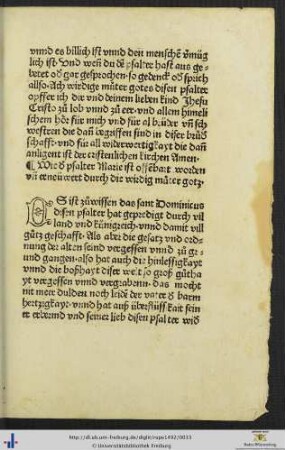 vnnd es billich ist vnnd den menschē vmüg
lich ist· Vnd weñ du dē psalter hast aus ge-
betet od̛ gar gesprochen· so gedenck od̛ sprich
also· Ach wirdige můter gotes disen psalter
opffer ich dir vnd deinem lieben kind Jhesu
Cristo zu lob vnnd zu eer· vnd allem himeli
schem hör für mich vnd für al brüder vñ sch
westren die dañ begriffen sind in diser brüd̛
schafft· vnd für all widerwertigkayt die dañ
anligent ist der cristenlichen kirchen Amen·
¶ Wie d̛ psalter Marie ist offenbart worden
vñ erneüwert durch die wirdig můter gotz·
ES ist zůwissen das sant Dominicus
disen psalter hat geprediget durch vil
land vnd künigreich· vnnd damit vill
gůtz geschafft· Als aber die gesatz vnd ord-
nung der alten seind vergessen vnnd zů gr-
und gangen· also hat auch die hinlessigkayt
vnnd die boßhayt diser welt so groß gůthayt
vergessen vnnd vergrabenn· das mocht
nit mere dulden noch leiden der vater d̛ barm
hertzigkayt· vnnd hat auß überflüssikait sein
er erbermd vnd seiner lieb disen psalter wid̛
http://dl.ub.uni-freiburg.de/diglit/rupe1492/0033
© Universitätsbibliothek Freiburg